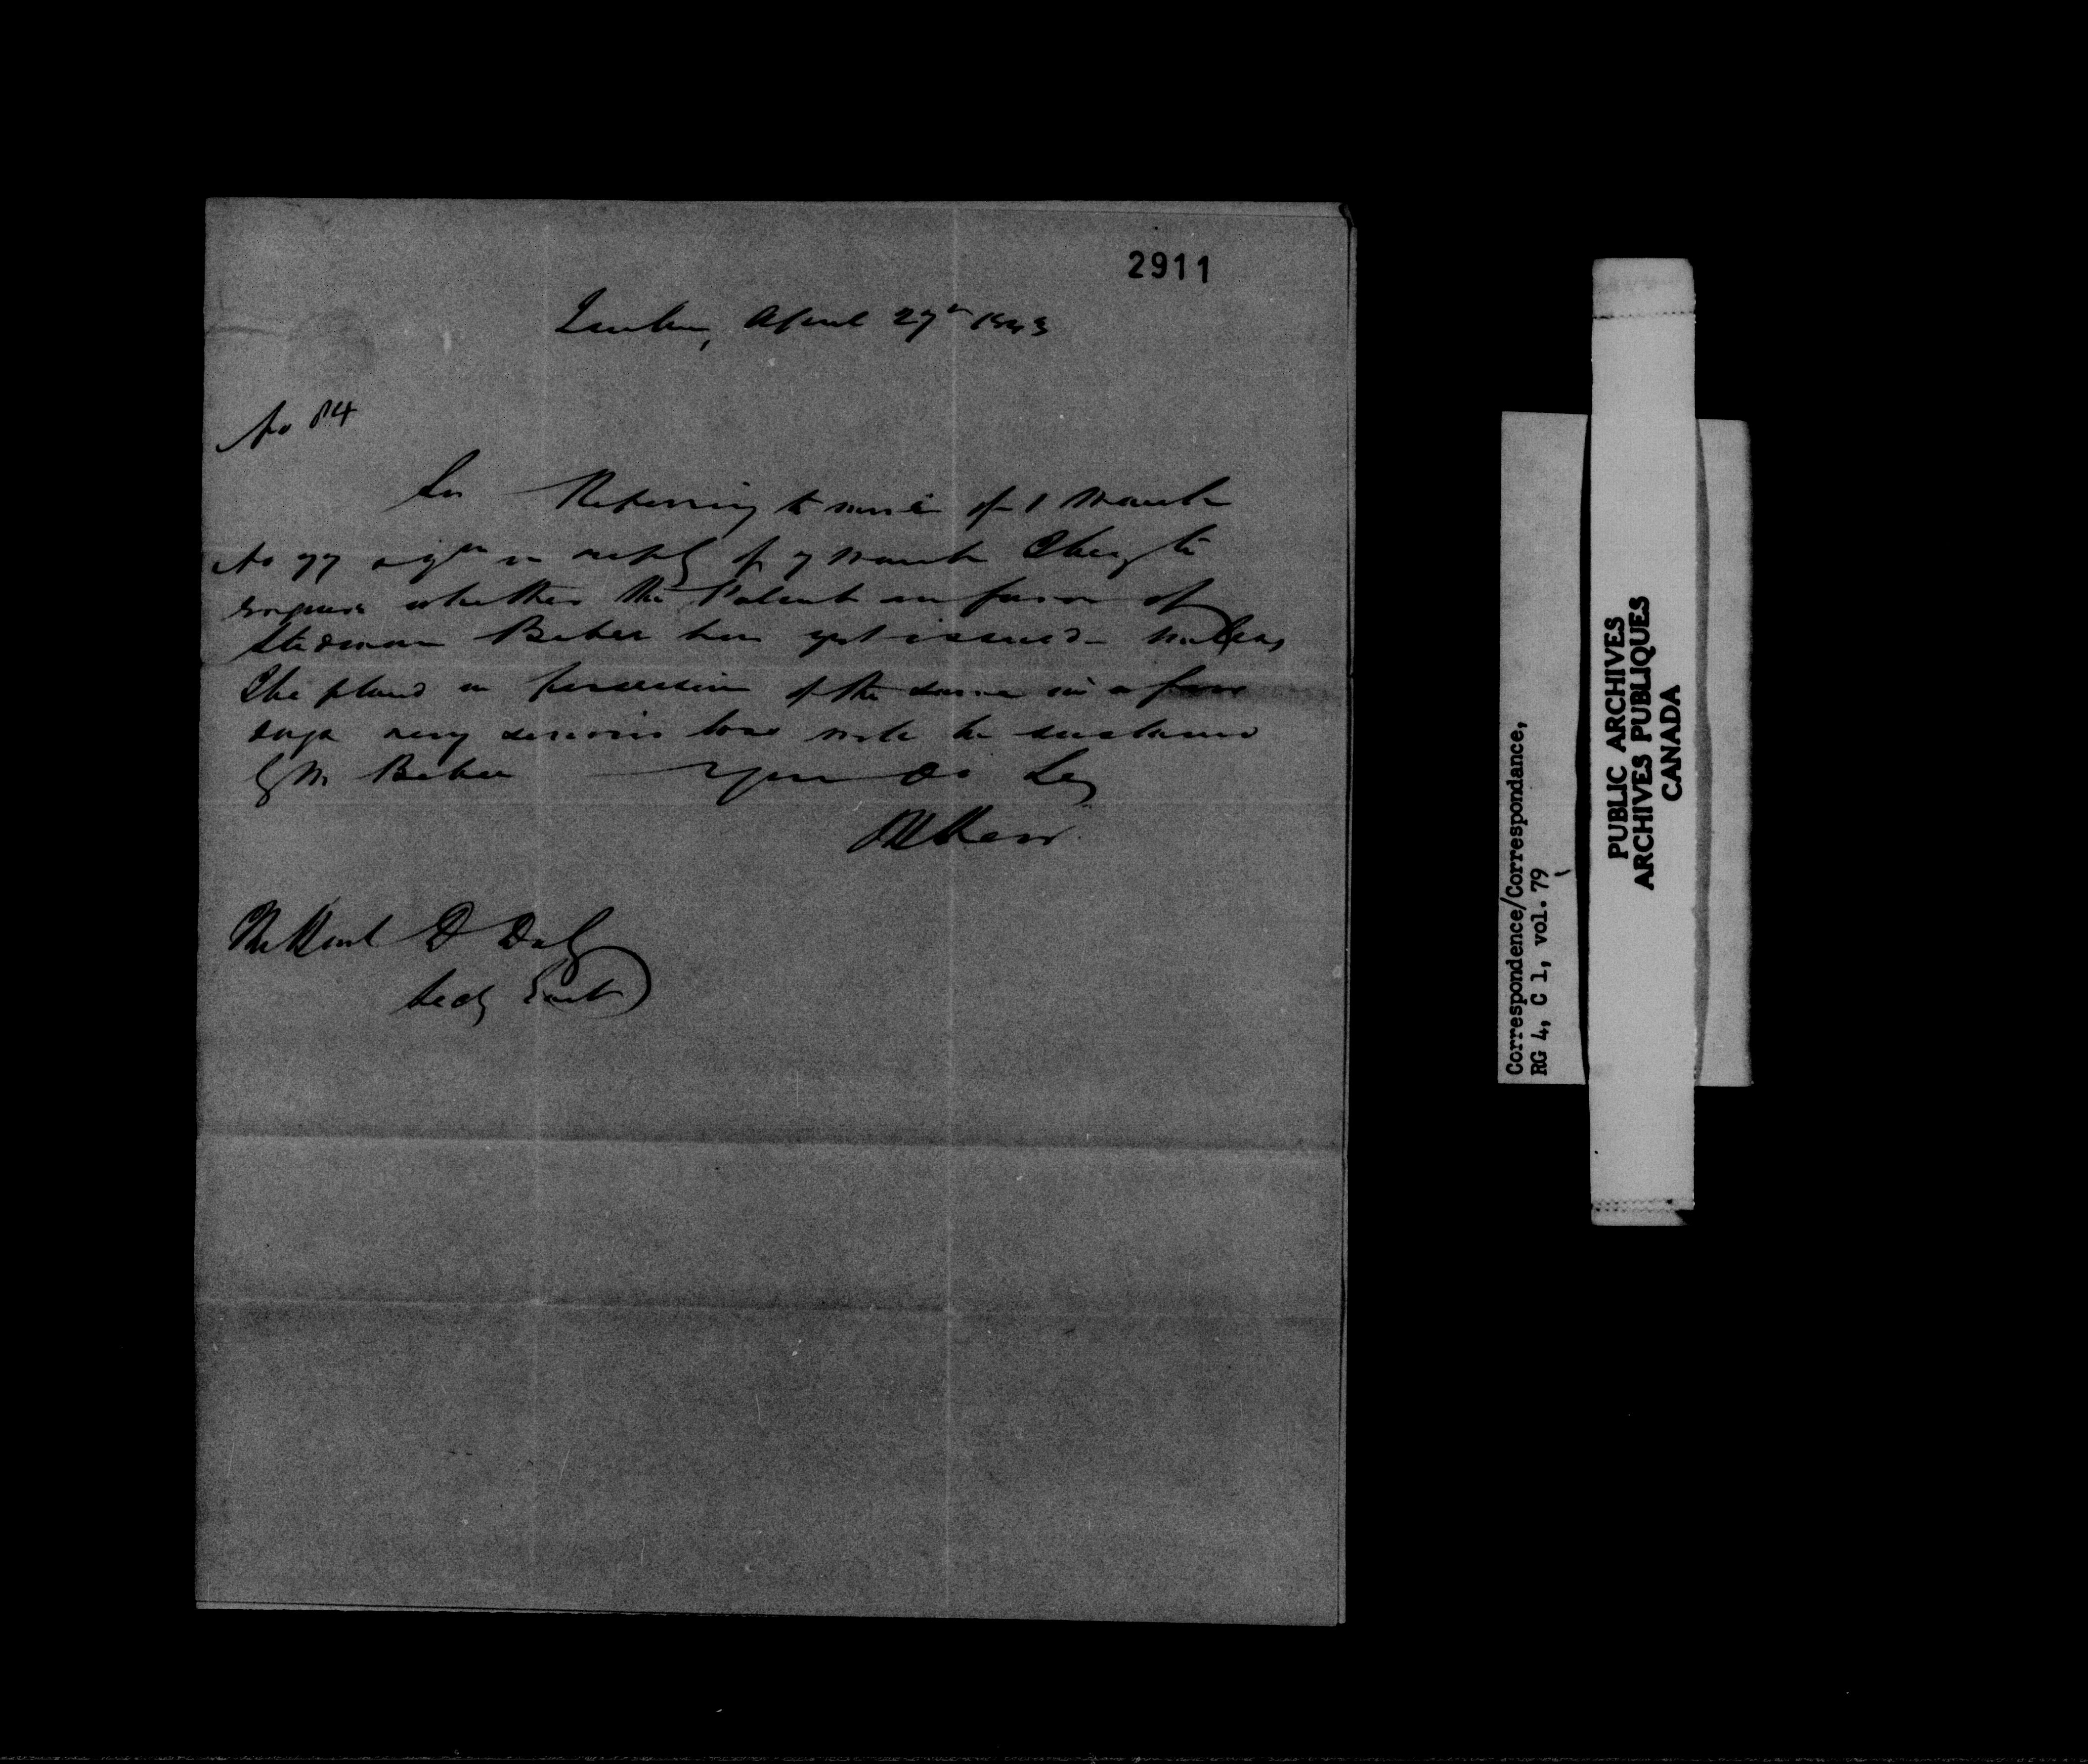 2911
Quebec, April 27th 1843
No 84
Sir Referring to mine of 1 March
No 77 & yr in reply of 7 March I beg to
enquire whether the Patent in favor of
Stedman Baker has yet issued - unless
I be placed in possession of the same in a few
days very serious loss will be sustained
by Mr Baker Your Ob Se
The Honl D Daly
Secy East
Correspondence/Correspondance,
RG 4, C 1, vol. 79
PUBLIC ARCHIVES
ARCHIVES PUBLIQUES
CANADA